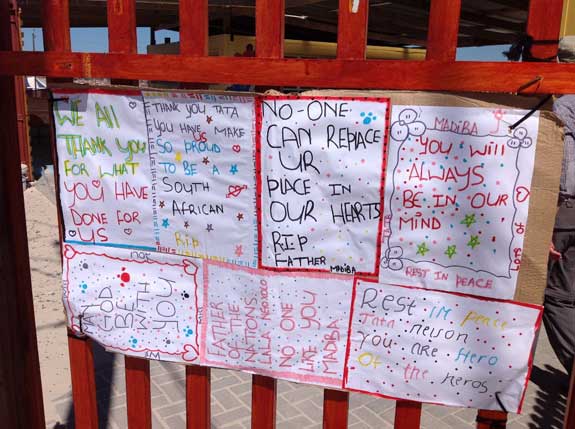 WE All
THANK YOU
FOR WHAT
YOU HAVE
DONE FOR
US
THANK YOU TATA
YOU HAVE MAKE
US
SO PROUD
TO BE A
SOUTH
AFRICAN
Rip
NO-ONE
CAN REPLACE
UR
PLACE IN
OUR HEARTS
R.I.P
FATHER
MADIBA
MADIBA
YOU Will
ALWAYS
BE IN OUR
MIND
REST IN PEACE
FATHER
OF THE
NATIONS.
LALA
NO ONE
LIKE YOU
MADIBA
Rest im peace
Tata nelson
You are Hero
Of the heros.